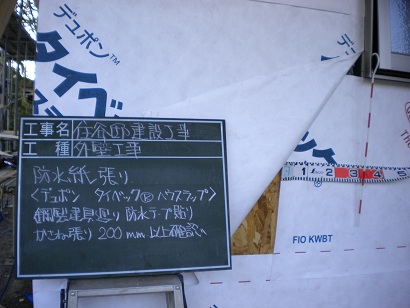 デュポン™
タイベック
デュポ
工事名 住谷邸建設工事
工種 外壁工事
防水紙張り
〈デュポン タイベック® ハウスラップ〉
鋼製建具廻り 防水テープ張り
かさね張り 200mm以上確認
1 2 3 4 5
FIO KWBT